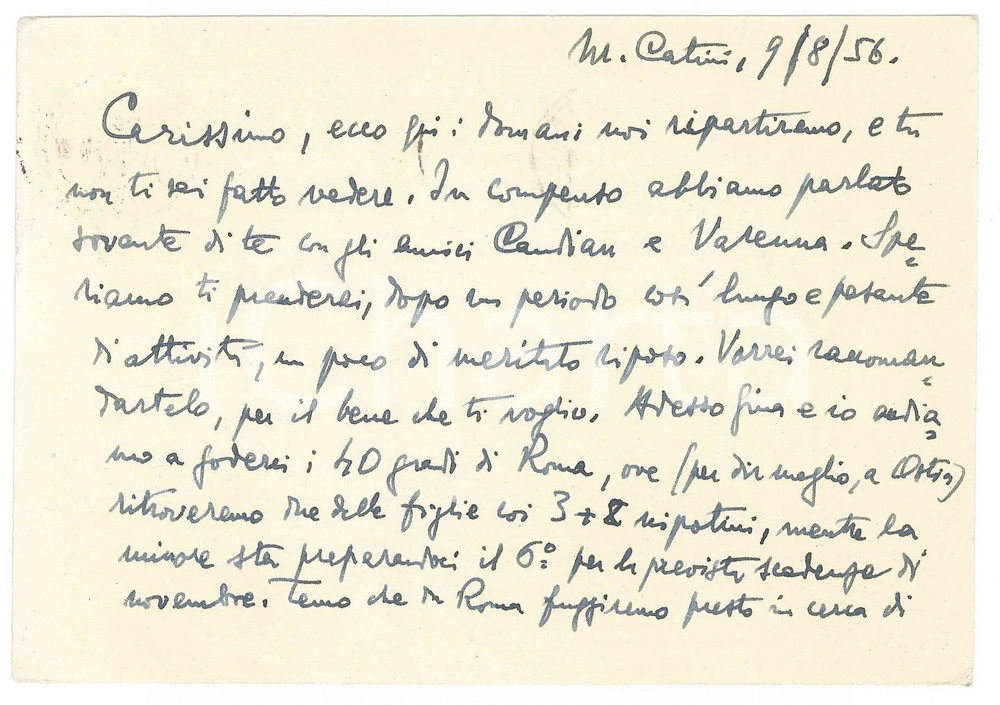 M. Catini, 9/8/56.
Carissimo, ecco qui: domani noi ripartiremo, e tu
non ti sei fatto vedere. In compenso abbiamo parlato
sovente di te con gli amici Candian e Varenna. Spe=
riamo ti prenderai, dopo un periodo così lungo e pesante
di attività, un poco di meritato riposo. Vorrei raccoman=
dartelo, per il bene che ti voglio. Adesso Gina e io andia=
mo a goderci i 40 gradi di Roma, ove (per dir meglio, a Ostia)
ritroveremo due delle figlie coi 3+2 nipotini, mentre la
minore sta preparandoci il 6° per la prevista scadenza di
novembre. Temo che da Roma fuggiremo presto in cerca di